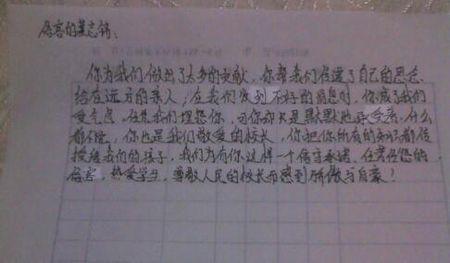 信客的某志锦：
你为我们做出了太多的贡献，你帮我们传递了自己的思念
给在远方的亲人；在我们收到不好的消息时，你成了我们
受气包，任凭我们埋怨你，可你却只是默默地承受着，什么
都不说，你也是我们敬爱的校长，你把你所有的知识都传
授给我们的孩子，我们为有你这样一个信守承诺，任劳任怨的
信客，热爱学生，尊敬人民的校长而感到骄傲与自豪！